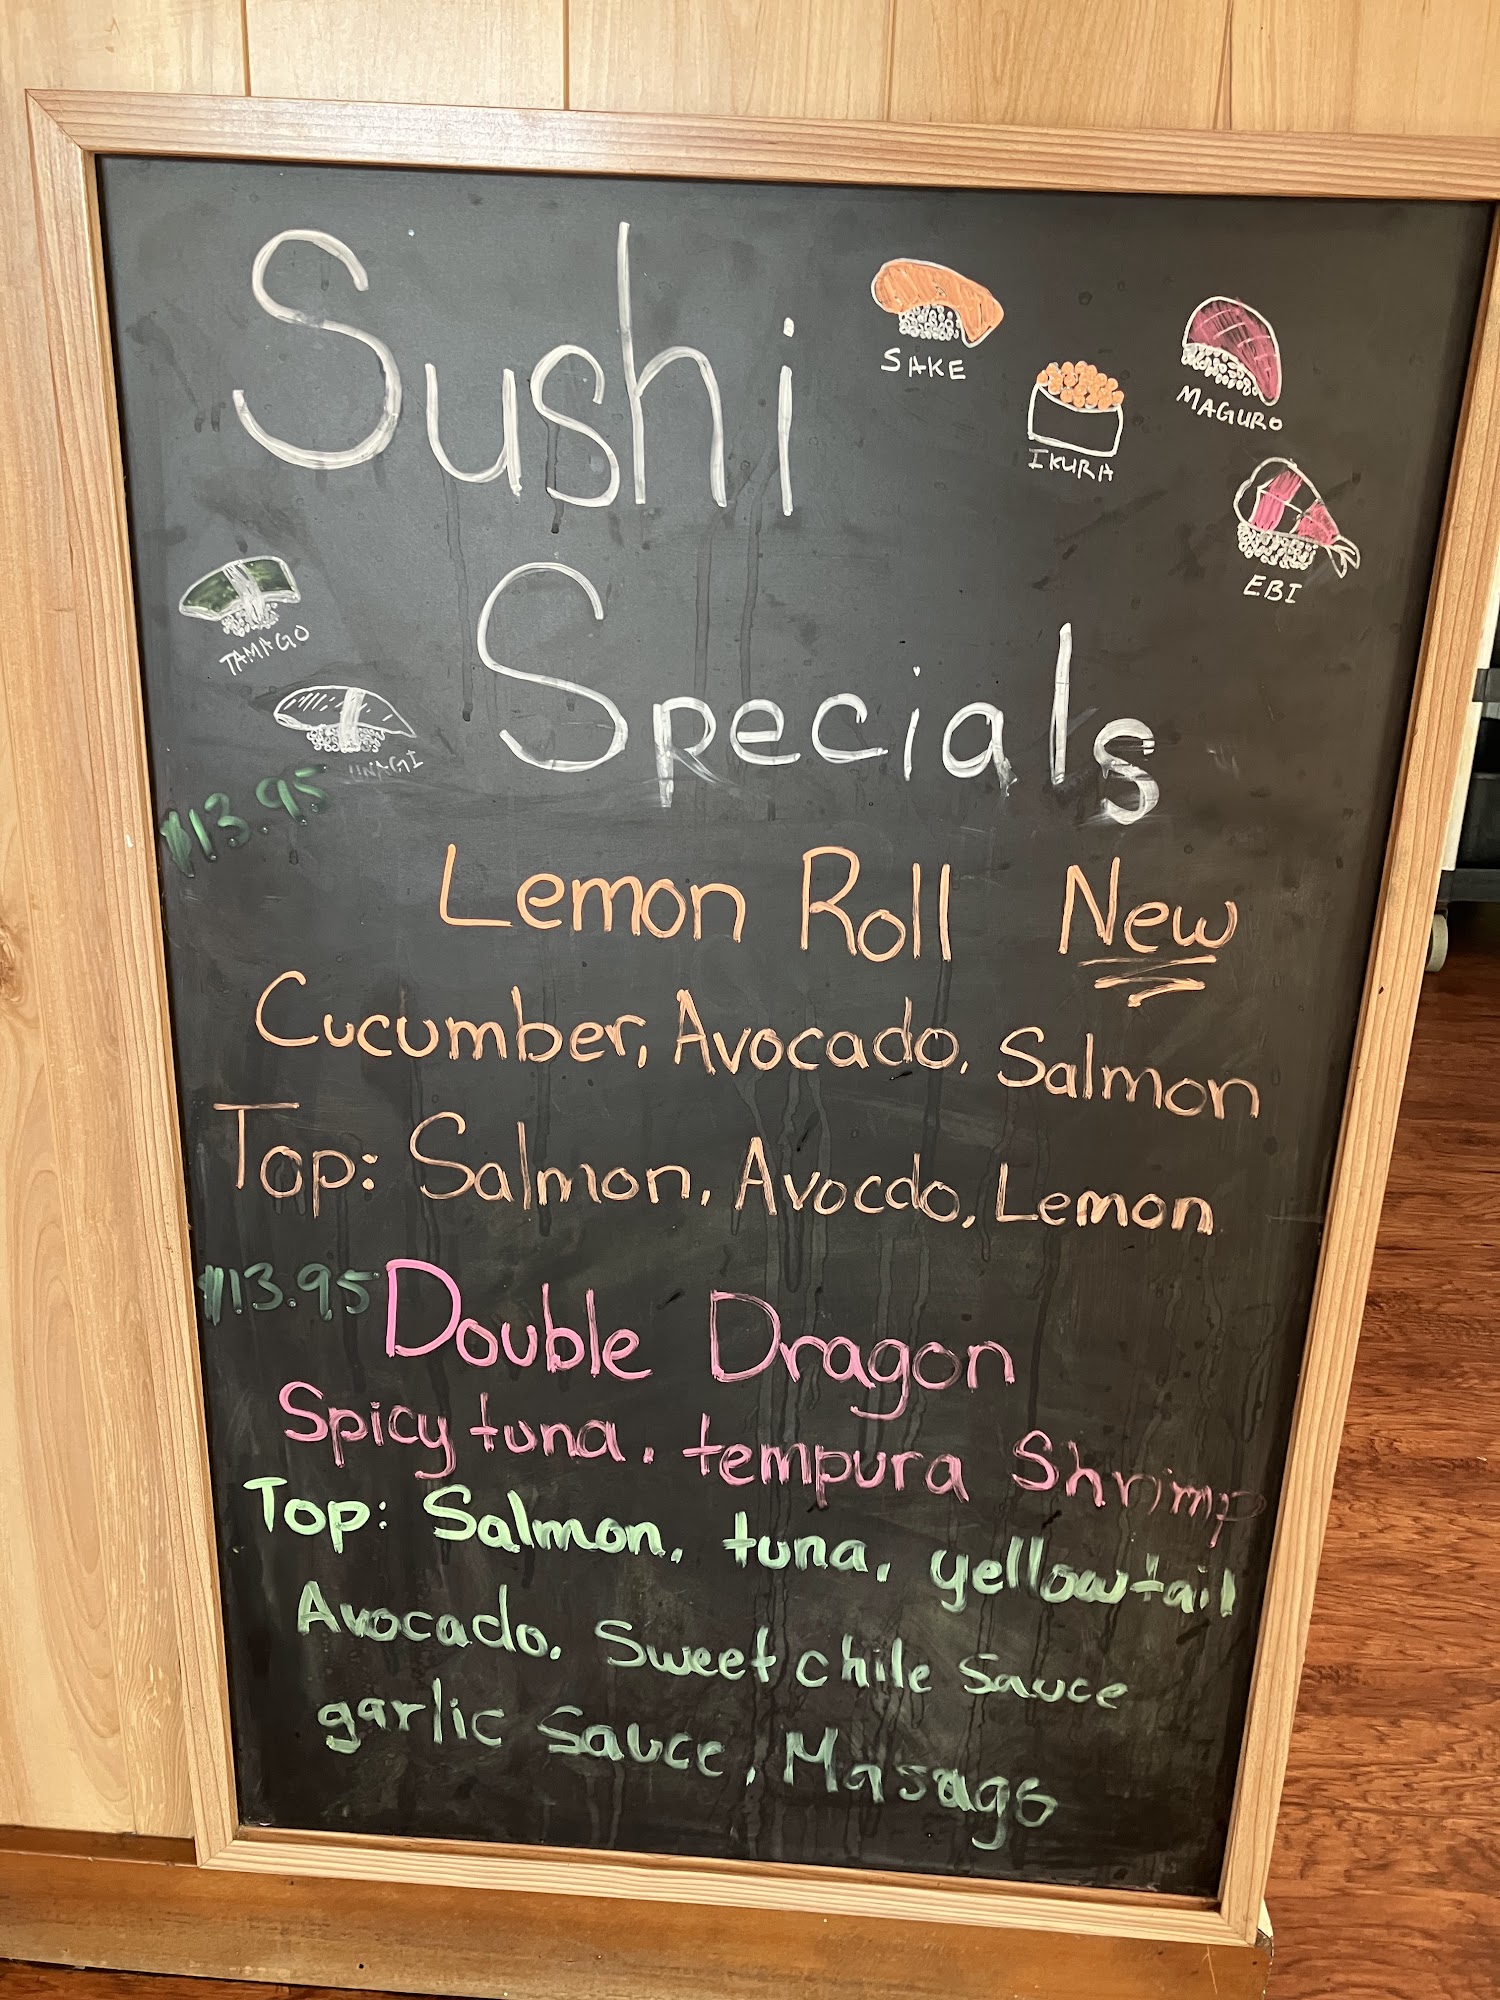 Sushi
SAKE
MAGURO
IKURA
EBI
TAMAGO
Specials
UNAGI
$13.95
Lemon Roll New
Cucumber, Avocado, Salmon
Top: Salmon, Avocdo, Lemon
$13.95 Double Dragon
Spicy tuna, tempura Shrimp
Top: Salmon, tuna, yellowtail
Avocado, Sweet chile Sauce
garlic Sauce, Masago